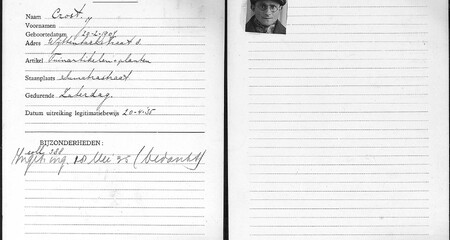 Naam Crost, y
Voornamen
Geboortedatum 29-2-1908
Adres Wyttenbachstraat
Artikel Tuinartikelen + planten
Staanplaats straat.
Gedurende Zaterdag.
Datum uitreiking legitimatiebewijs 20-4-35
BIJZONDERHEDEN:
ing. 10 Mei 35 (bedankt)